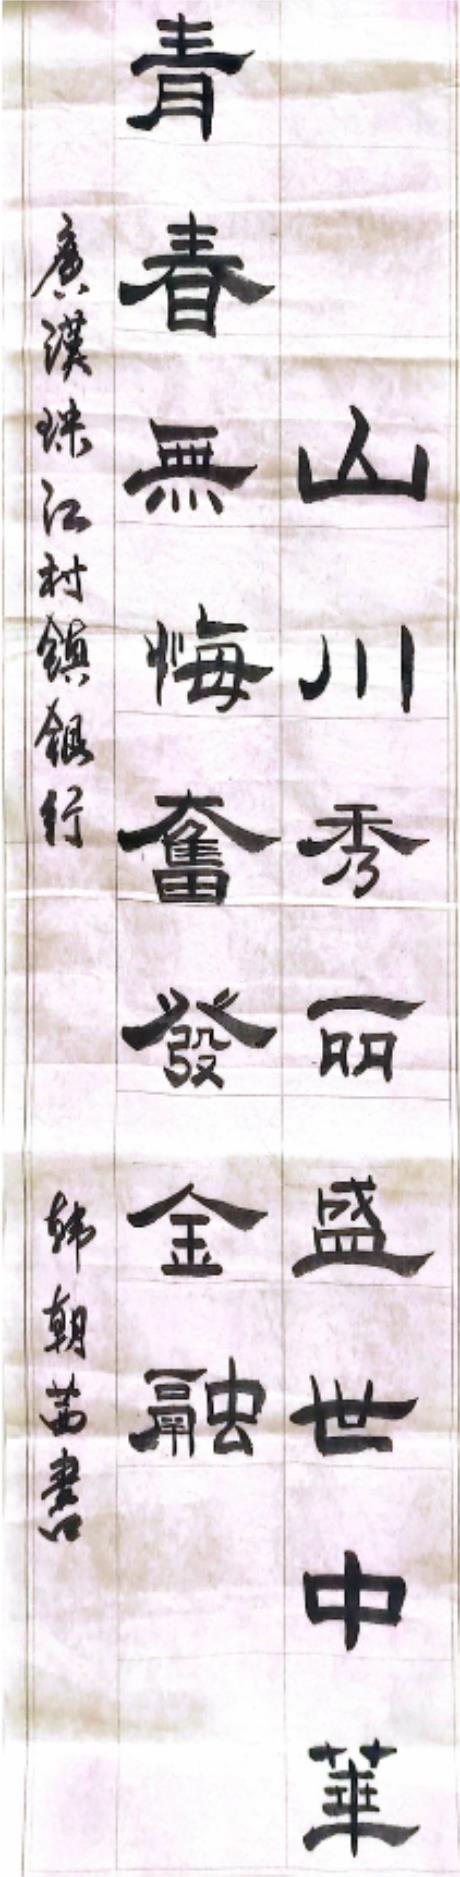 山川秀丽盛世中華
青春無悔奮發金融
廣漢珠江村鎮銀行
韩朝茜書